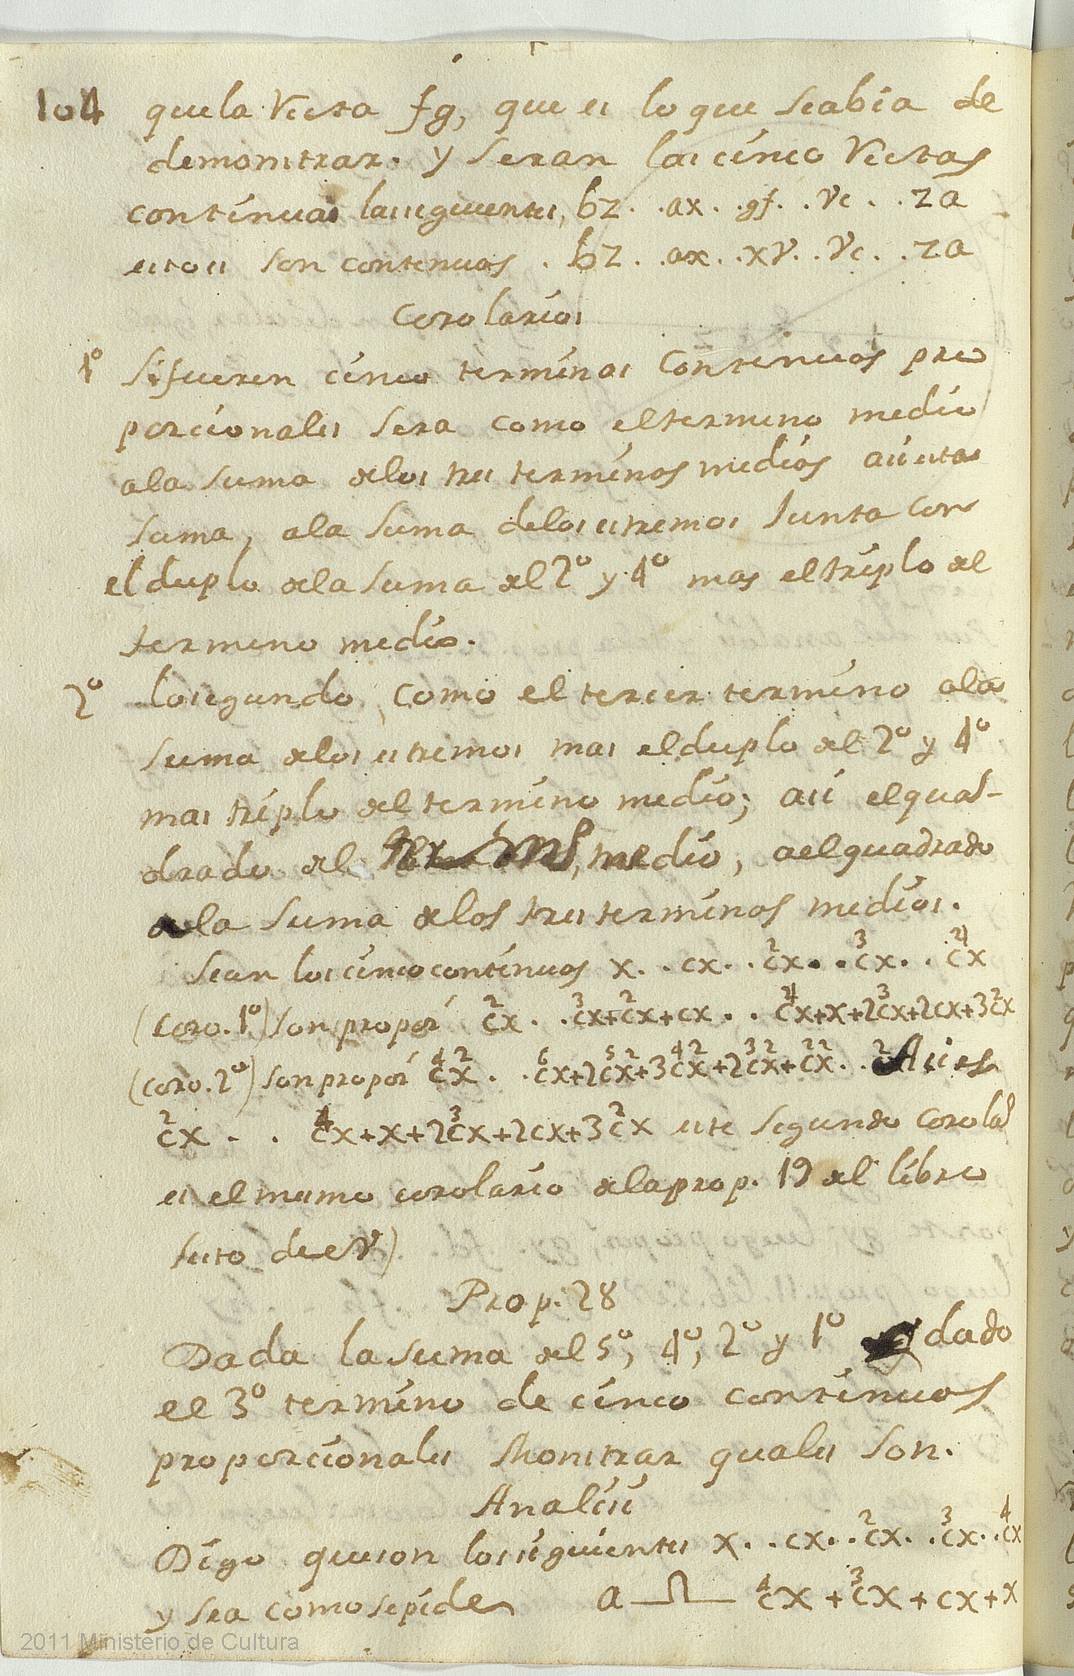 104 que la Recta fg, que es lo que se abia de
demonstrar. y seran las cinco Rectas
continuas las siguientes, bz. . ax. . gf. . rc. . za
estos son continuas . bz. . ax. . xr. . rc. . za
Corolarios
1º Si fueren cinco terminos continuos pro
porcionales sera como el termino medio
a la suma de los tres terminos medios asi esta
suma, a la suma de los estremos Junta con
el duplo de la suma del 2º y 4º mas el triplo del
termino medio.
2º lo segundo, como el tercer termino a la
suma de los estremos mas el duplo del 2º y 4º
mas triplo del termino medio; asi el qua-
drado del medio, a el quadrado
de la suma de los tres terminos medios.
Sean los cinco continuos x. . cx. . c²x. . c³x. . c⁴x
(coro. 1º) son propor c²x. . c³x+c²x+cx. . c⁴x+x+2c³x+2cx+3c²x
(coro. 2º) son propor c⁴x². . c⁶x²+2c⁵x²+3c⁴x²+2c³x²+c²x². . Asi es
c²x. . c⁴x+x+2c³x+2cx+3c²x este segundo corola
es el mismo corolario de la prop. 19 del libro
sesto de er)
Prop. 28
Dada la suma del 5º, 4º, 2º y 1º y dado
el 3º termino de cinco continuos
proporcionales Monstrar quales son.
Analisis
Digo que son los siguientes x. . cx. . c²x. . c³x. . c⁴x
y sea como se pide a c⁴x + c³x + cx + x
2011 Ministerio de Cultura